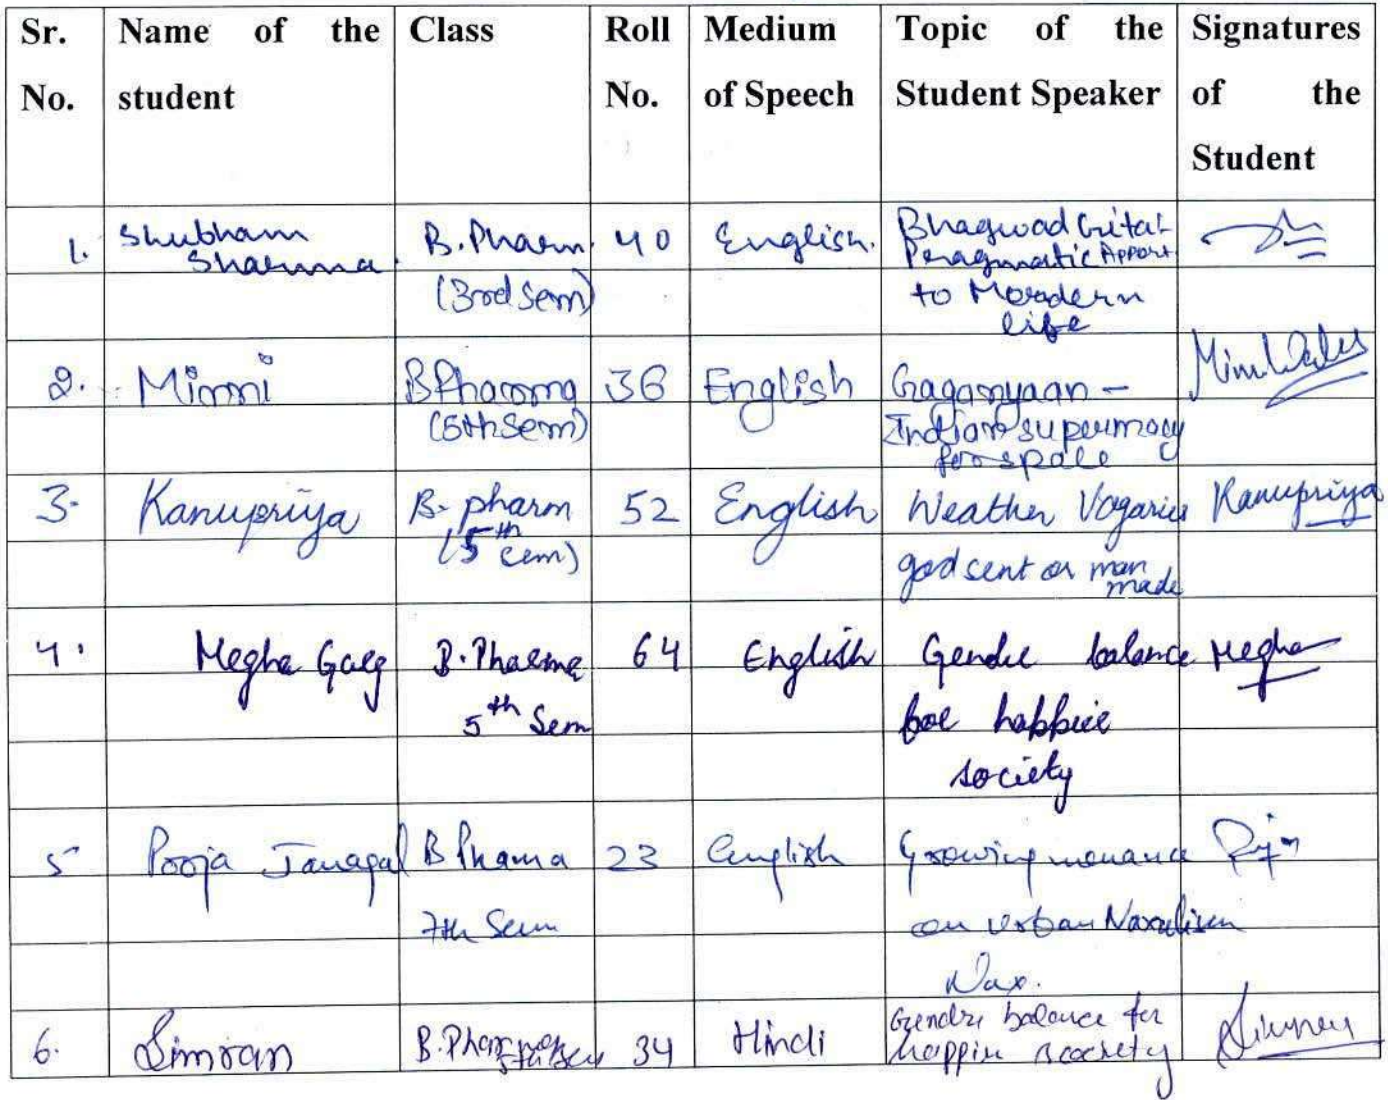 Sr. No. Name of the student Class Roll No. Medium of Speech Topic of the Student Speaker Signatures of the Student
1. Shubham Sharma. B.Pharm. (3rd Sem) 40 English. Bhagwad Gita:- Peragmatic to Moardern life
2. Minni B Pharmma (5th Sem) 36 English Gaganyaan - Indian supermacy for space
3. Kanupriya B. pharm (5th sem) 52 English Weather Vagaries god sent or man made Kanupriya
4. Megha Garg B. Pharma 5th Sem 64 English Gender balance for happier society Megha
5 Pooja B Phama 7th Sem 23 English Growing on Urban Naxalism Nax.
6. Simran B.Pharma 34 Hindi Gendre balance for happier society Simran